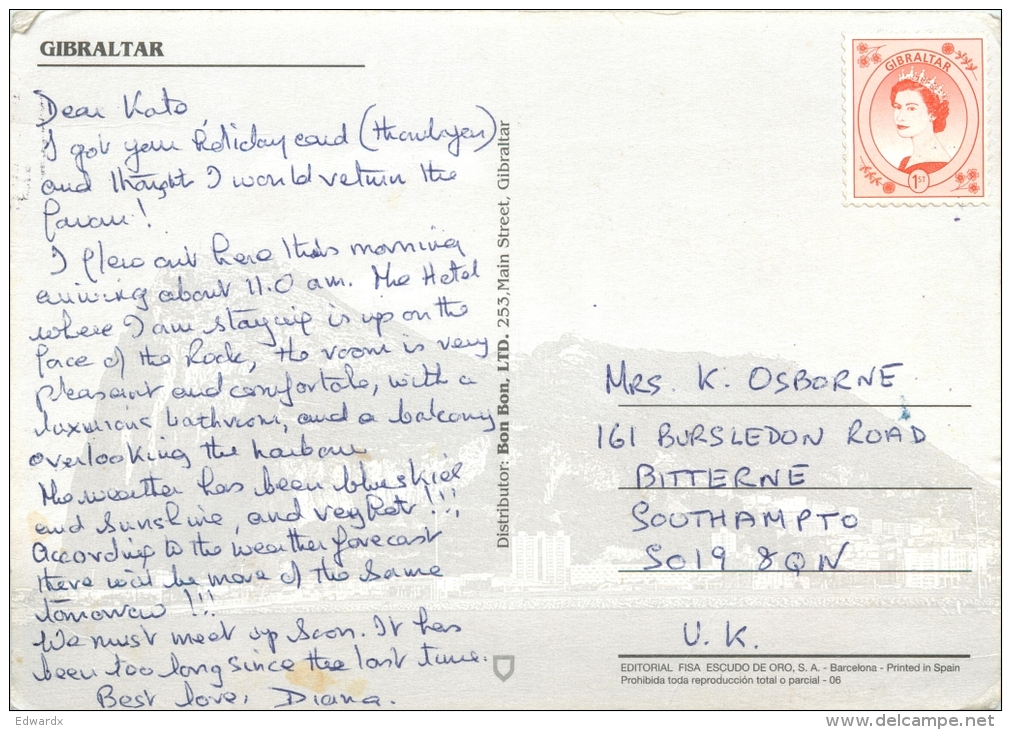 GIBRALTAR
Dear Kate
I got your holiday card (thankyou)
and thought I would return the
favour!
I flew out here this morning
arriving about 11.0 am. The Hotel
where I am staying is up on the
face of the Rock, the room is very
pleasant and comfortable, with a
luxurious bathroom, and a balcony
overlooking the harbour
The weather has been blue skies
and sunshine, and very hot!!!
According to the weather forecast
there will be more of the same
tomorrow!!!
We must meet up soon. It has
been too long since the last time.
Best love, Diana.
Distributor: Bon Bon, LTD. 253,Main Street, Gibraltar
GIBRALTAR
1ST
MRS. K. OSBORNE
161 BURSLEDON ROAD
BITTERNE
SOUTHAMPTO
SO19 8QN
U.K.
EDITORIAL FISA ESCUDO DE ORO, S. A. - Barcelona - Printed in Spain
Prohibida toda reproducción total o parcial - 06
Edwardx
www.delcampe.net